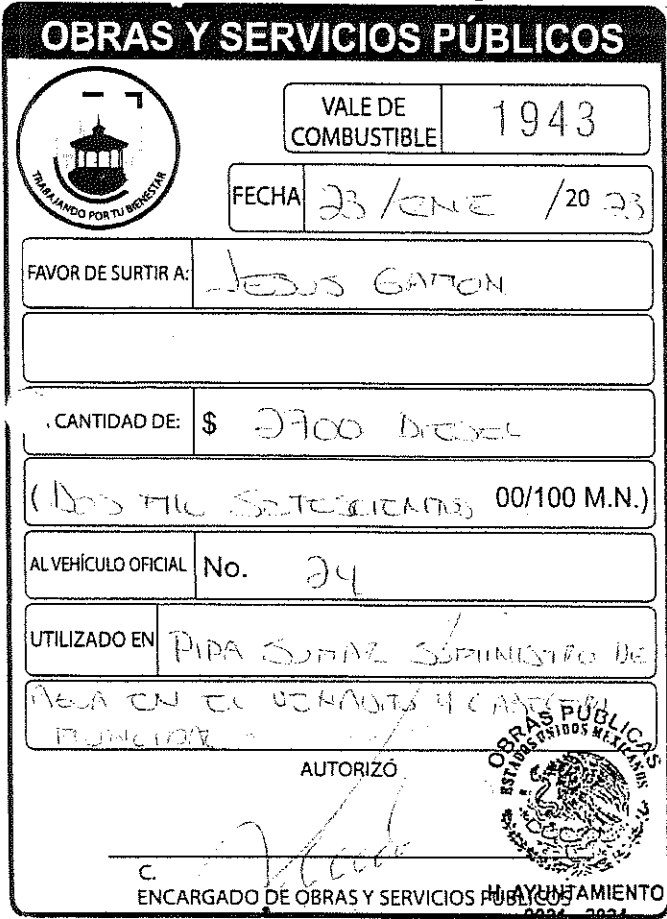 OBRAS Y SERVICIOS PÚBLICOS
TRABAJANDO POR TU BIENESTAR
VALE DE COMBUSTIBLE 1943
FECHA 23 / ENE / 20 23
FAVOR DE SURTIR A: JESUS GAITON
CANTIDAD DE: $ 2700 DIESEL
(DOS MIL SETESCIENTOS 00/100 M.N.)
AL VEHÍCULO OFICIAL No. 24
UTILIZADO EN PIPA SUMAR SUMINISTRO DE
AGUA EN EL VENADITO Y CABECERA
MUNICIPAL
AUTORIZÓ
OBRAS PÚBLICAS
ESTADOS UNIDOS MEXICANOS
C.
ENCARGADO DE OBRAS Y SERVICIOS PÚBLICOS
H. AYUNTAMIENTO
2021 - 2024